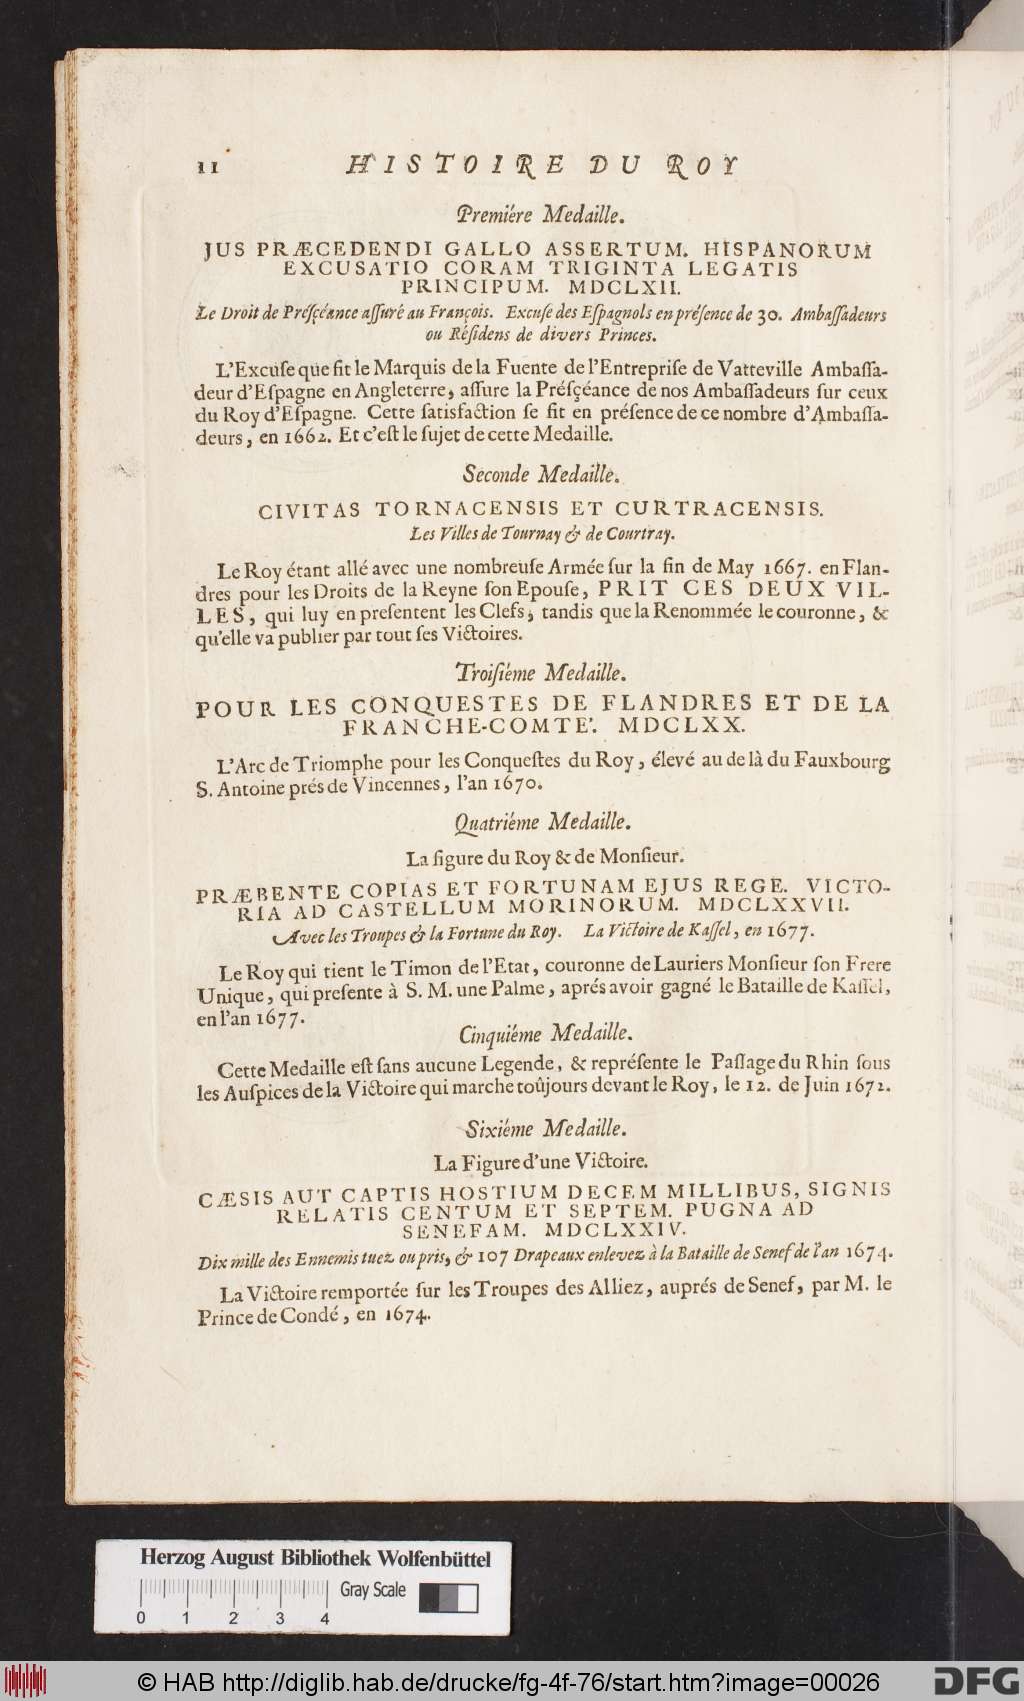 11 HISTOIRE DU ROY
Premiére Medaille.
JUS PRÆCEDENDI GALLO ASSERTUM. HISPANORUM
EXCUSATIO CORAM TRIGINTA LEGATIS
PRINCIPUM. MDCLXII.
Le Droit de Préſçéance aſſuré au François. Excuſe des Eſpagnols en préſence de 30. Ambaſſadeurs
ou Réſidens de divers Princes.
L'Excuſe que fit le Marquis de la Fuente de l'Entrepriſe de Vatteville Ambaſſa-
deur d'Eſpagne en Angleterre, aſſure la Préſçéance de nos Ambaſſadeurs ſur ceux
du Roy d'Eſpagne. Cette ſatisfaction ſe fit en préſence de ce nombre d'Ambaſſa-
deurs, en 1662. Et c'eſt le ſujet de cette Medaille.
Seconde Medaille.
CIVITAS TORNACENSIS ET CURTRACENSIS.
Les Villes de Tournay & de Courtray.
Le Roy étant allé avec une nombreuſe Armée ſur la fin de May 1667. en Flan-
dres pour les Droits de la Reyne ſon Epouſe, PRIT CES DEUX VIL-
LES, qui luy en preſentent les Clefs, tandis que la Renommée le couronne, &
qu'elle va publier par tout ſes Victoires.
Troiſiéme Medaille.
POUR LES CONQUESTES DE FLANDRES ET DE LA
FRANCHE-COMTE'. MDCLXX.
L'Arc de Triomphe pour les Conqueſtes du Roy, élevé au de là du Fauxbourg
S. Antoine prés de Vincennes, l'an 1670.
Quatriéme Medaille.
La figure du Roy & de Monſieur.
PRÆBENTE COPIAS ET FORTUNAM EJUS REGE. VICTO-
RIA AD CASTELLUM MORINORUM. MDCLXXVII.
Avec les Troupes & la Fortune du Roy. La Victoire de Kaſſel, en 1677.
Le Roy qui tient le Timon de l'Etat, couronne de Lauriers Monſieur ſon Frere
Unique, qui preſente à S. M. une Palme, aprés avoir gagné le Bataille de Kaſſel,
en l'an 1677.
Cinquiéme Medaille.
Cette Medaille eſt ſans aucune Legende, & repréſente le Paſſage du Rhin ſous
les Auſpices de la Victoire qui marche toûjours devant le Roy, le 12. de Juin 1672.
Sixiéme Medaille.
La Figure d'une Victoire.
CÆSIS AUT CAPTIS HOSTIUM DECEM MILLIBUS, SIGNIS
RELATIS CENTUM ET SEPTEM. PUGNA AD
SENEFAM. MDCLXXIV.
Dix mille des Ennemis tuez ou pris, & 107 Drapeaux enlevez à la Bataille de Senef de l'an 1674.
La Victoire remportée ſur les Troupes des Alliez, auprés de Senef, par M. le
Prince de Condé, en 1674.
Herzog August Bibliothek Wolfenbüttel
Gray Scale
0 1 2 3 4
© HAB http://diglib.hab.de/drucke/fg-4f-76/start.htm?image=00026
DFG